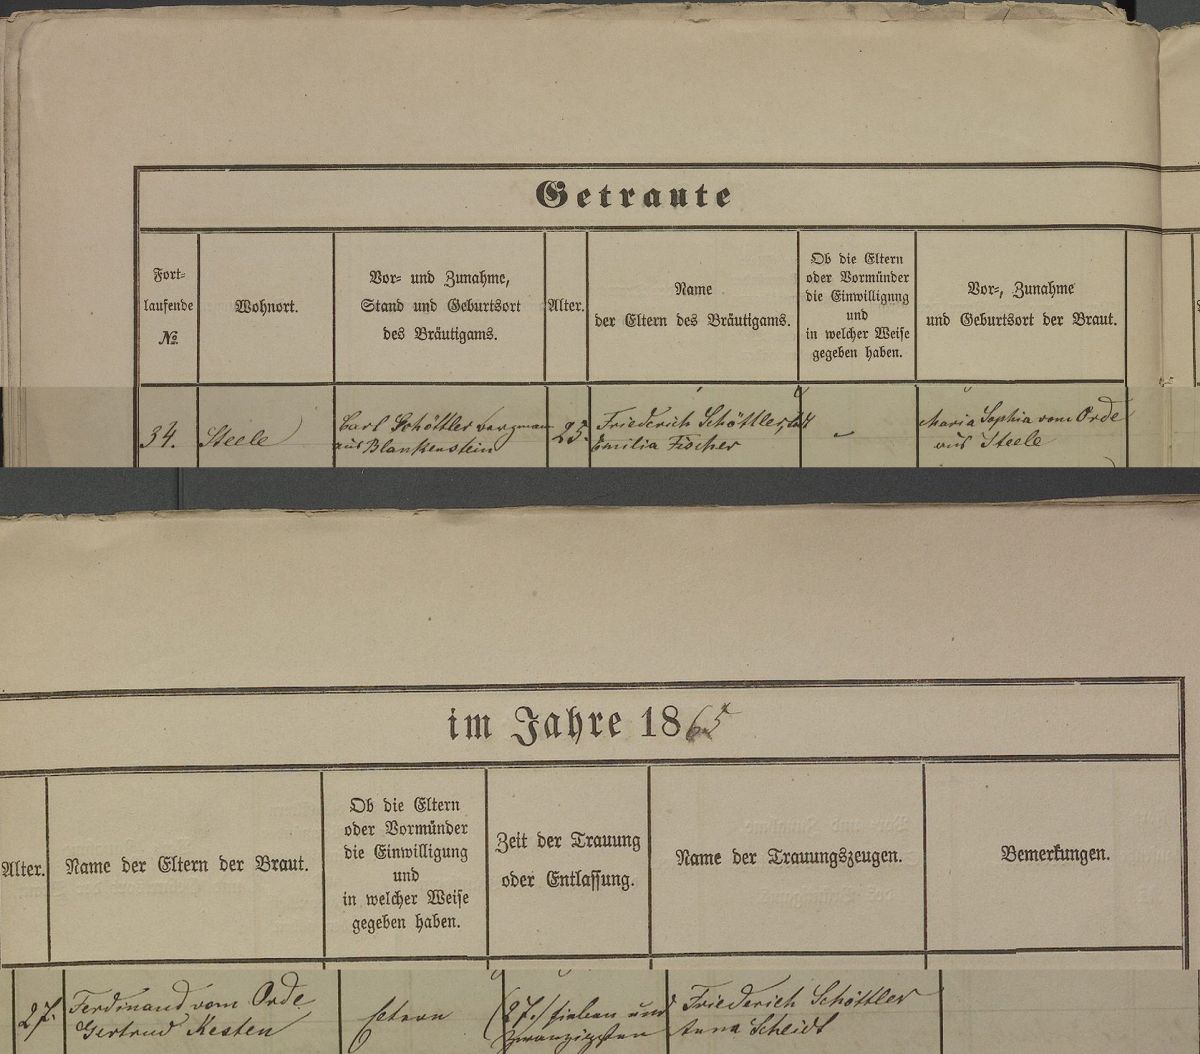 Getraute
Fort-
laufende
No.
Wohnort.
Vor- und Zunahme,
Stand und Geburtsort
des Bräutigams.
Alter.
Name
der Eltern des Bräutigams.
Ob die Eltern
oder Vormünder
die Einwilligung
und
in welcher Weise
gegeben haben.
Vor-, Zunahme
und Geburtsort der Braut.
34.
Steele
Carl Schöttler Bergman
aus Blankenstein
25.
Friederich Schöttler,
Emilia Fischer
Maria Sophia vom Orde
aus Steele
im Jahre 1865
Alter.
Name der Eltern der Braut.
Ob die Eltern
oder Vormünder
die Einwilligung
und
in welcher Weise
gegeben haben.
Zeit der Trauung
oder Entlassung.
Name der Trauungszeugen.
Bemerkungen.
27.
Ferdinand vom Orde
Gertrud Kesten
(27.) sieben und
zwanzigsten
Friederich Schöttler
Anna Scheidt